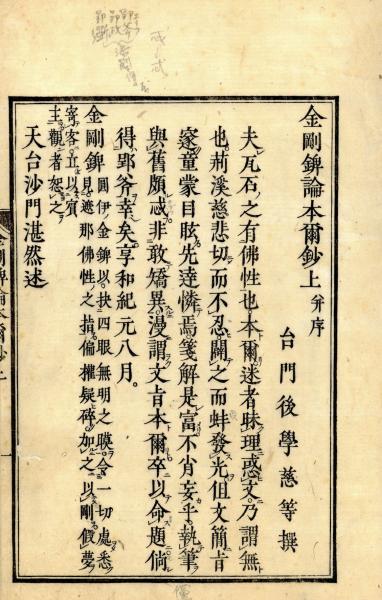 金剛錍論本爾鈔上 并序
台門後學慈等撰
夫瓦石之有佛性也本爾迷者昧理惑文乃謂無
也荊溪慈悲切而不忍闢之而蚌發光但文簡旨
邃童蒙目眩先達憐焉箋解是富不肖妄乎執筆
與舊頗忒非敢矯異漫謂文旨本爾卒以命題倘
得郢斧幸矣享和紀元八月
金剛錍 圓伊金錍以抉四眼無明之膜令一切處悉
見遮那佛性之指偏權疑碎加之以剛假夢
寄客立以賓
主觀者恕之
天台沙門湛然述